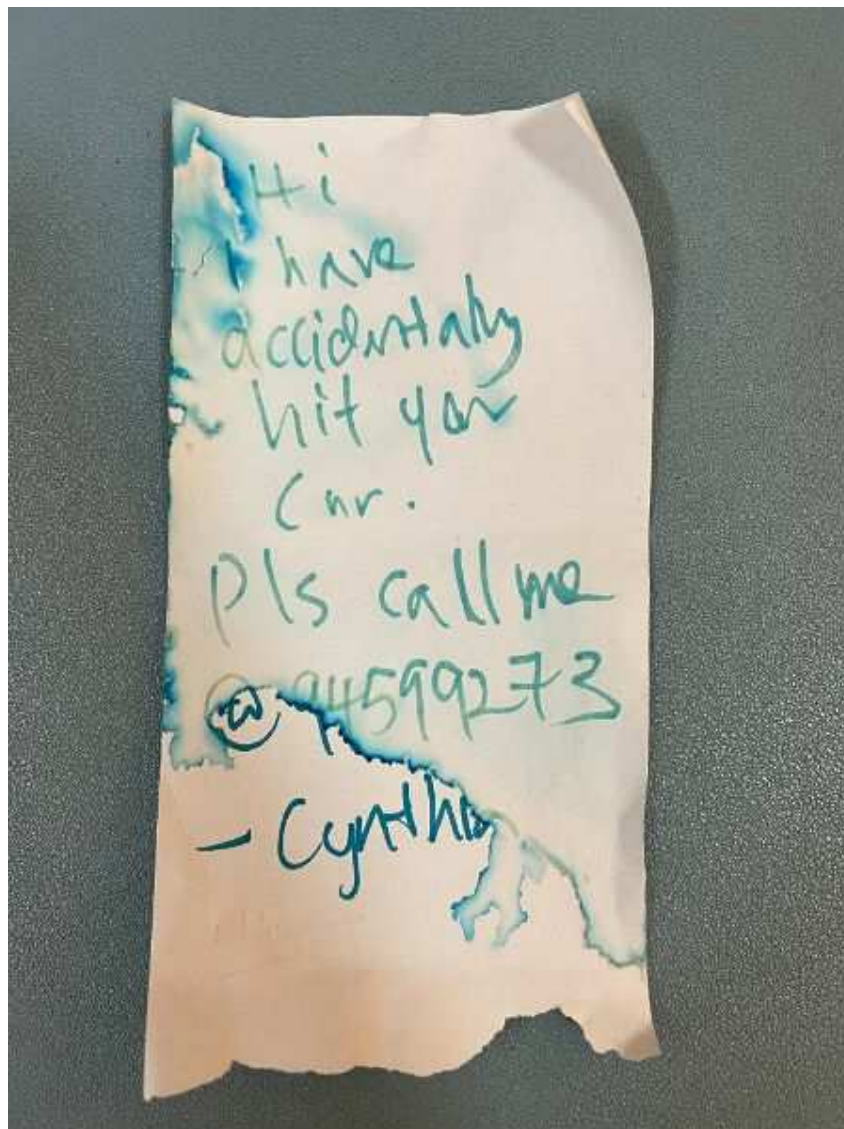 Hi
I have
accidentally
hit your
car.
Pls call me
@ 94599273
- Cynthia